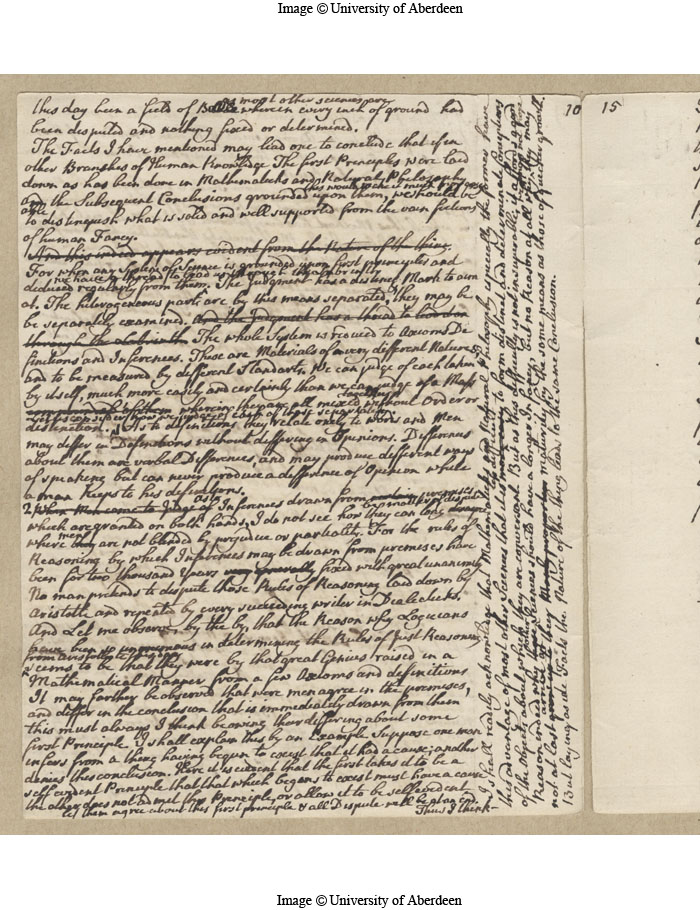 Image © University of Aberdeen
10
15
this day been a field of wherein every inch of ground had
most other sciences are
been disputed and nothing fixed or determined.
The Facts I have mentioned may lead one to conclude that if in
other Branches of Human Knowledge The first Principles were laid
down as has been done in Mathematicks and Natural Philosophy
and the Subsequent Conclusions grounded upon them, we should be
able
to distinguish what is solid and well supported from the vain fictions
of human Fancy.
And this indeed appears evident from the Nature of the thing.
For when any System of Science is grounded upon first principles and
deduced regularly from them. The Judgment has a distinct Mark to aim
at. The heterogeneous parts are by this means separated, they may be
be separately examined. And the Judgment has a thread to
through the The whole System is reduced to Axioms De
finitions and Inferences. These are Materials of a very different Nature
and to be measured by different Standards, we can judge of each taken
by itself, much more easily and certainly than we can judge of a Mass
wherein they are all mixed without Order or
distinction. As to definitions they relate only to words and Men
may differ in Definitions without differing in Opinions. Differences
about them are verbal Differences, and may produce different ways
of speaking but can never produce a difference of Opinion while
a man keeps to his definitions.
2 When Men come to judge of Inferences drawn from premises
as to
which are granted on both hands, I do not see how they can long
where they are not blinded by prejudice or partiality. For the rules of
men
Reasoning by which Inferences may be drawn from premises have
been for two thousand Years very generally fixed with great unanimity
No man pretends to dispute those Rules of Reasoning laid down by
Aristotle and repeated by every succeeding writer in Dialecticks.
And Let me observe by the by that the Reason why Logicians
have been so unanimous in determining the Rules of Just Reasoning
from Aristotle
seems to be that they were by that great Genius raised in a
Mathematical Manner from a few Axioms and definitions
It may farther be observed that were men agree in the premises,
and differ in the conclusion that is immediately drawn from them
this must always I think be owing to their differing about some
first Principle. I shall explain this by an Example. Suppose one man
infers from a thing having begun to exist that it had a cause; another
denies this conclusion. Here it is evident that the first takes it to be a
self evident Principle that that which begins to exist must have a cause
the other does not admit this Principle or allow it to be self evident
let them agree about this first principle & all Dispute will be at an end.
Thus I think
I shall readily acknowledge that Mathematicks and Natural Philosophy especially the former have
this advantage of most other Sciences that
of the Objects about which they are conversant. But as this difficulty is not insuperable, it affords a good
Reason indeed why other Sciences should have a longer Infancy, but no Reason at all why they may
not at last arrive at maturity by the same means as those of quicker growth.
But laying aside Facts the Nature of the thing leads to the same Conclusion.
Image © University of Aberdeen